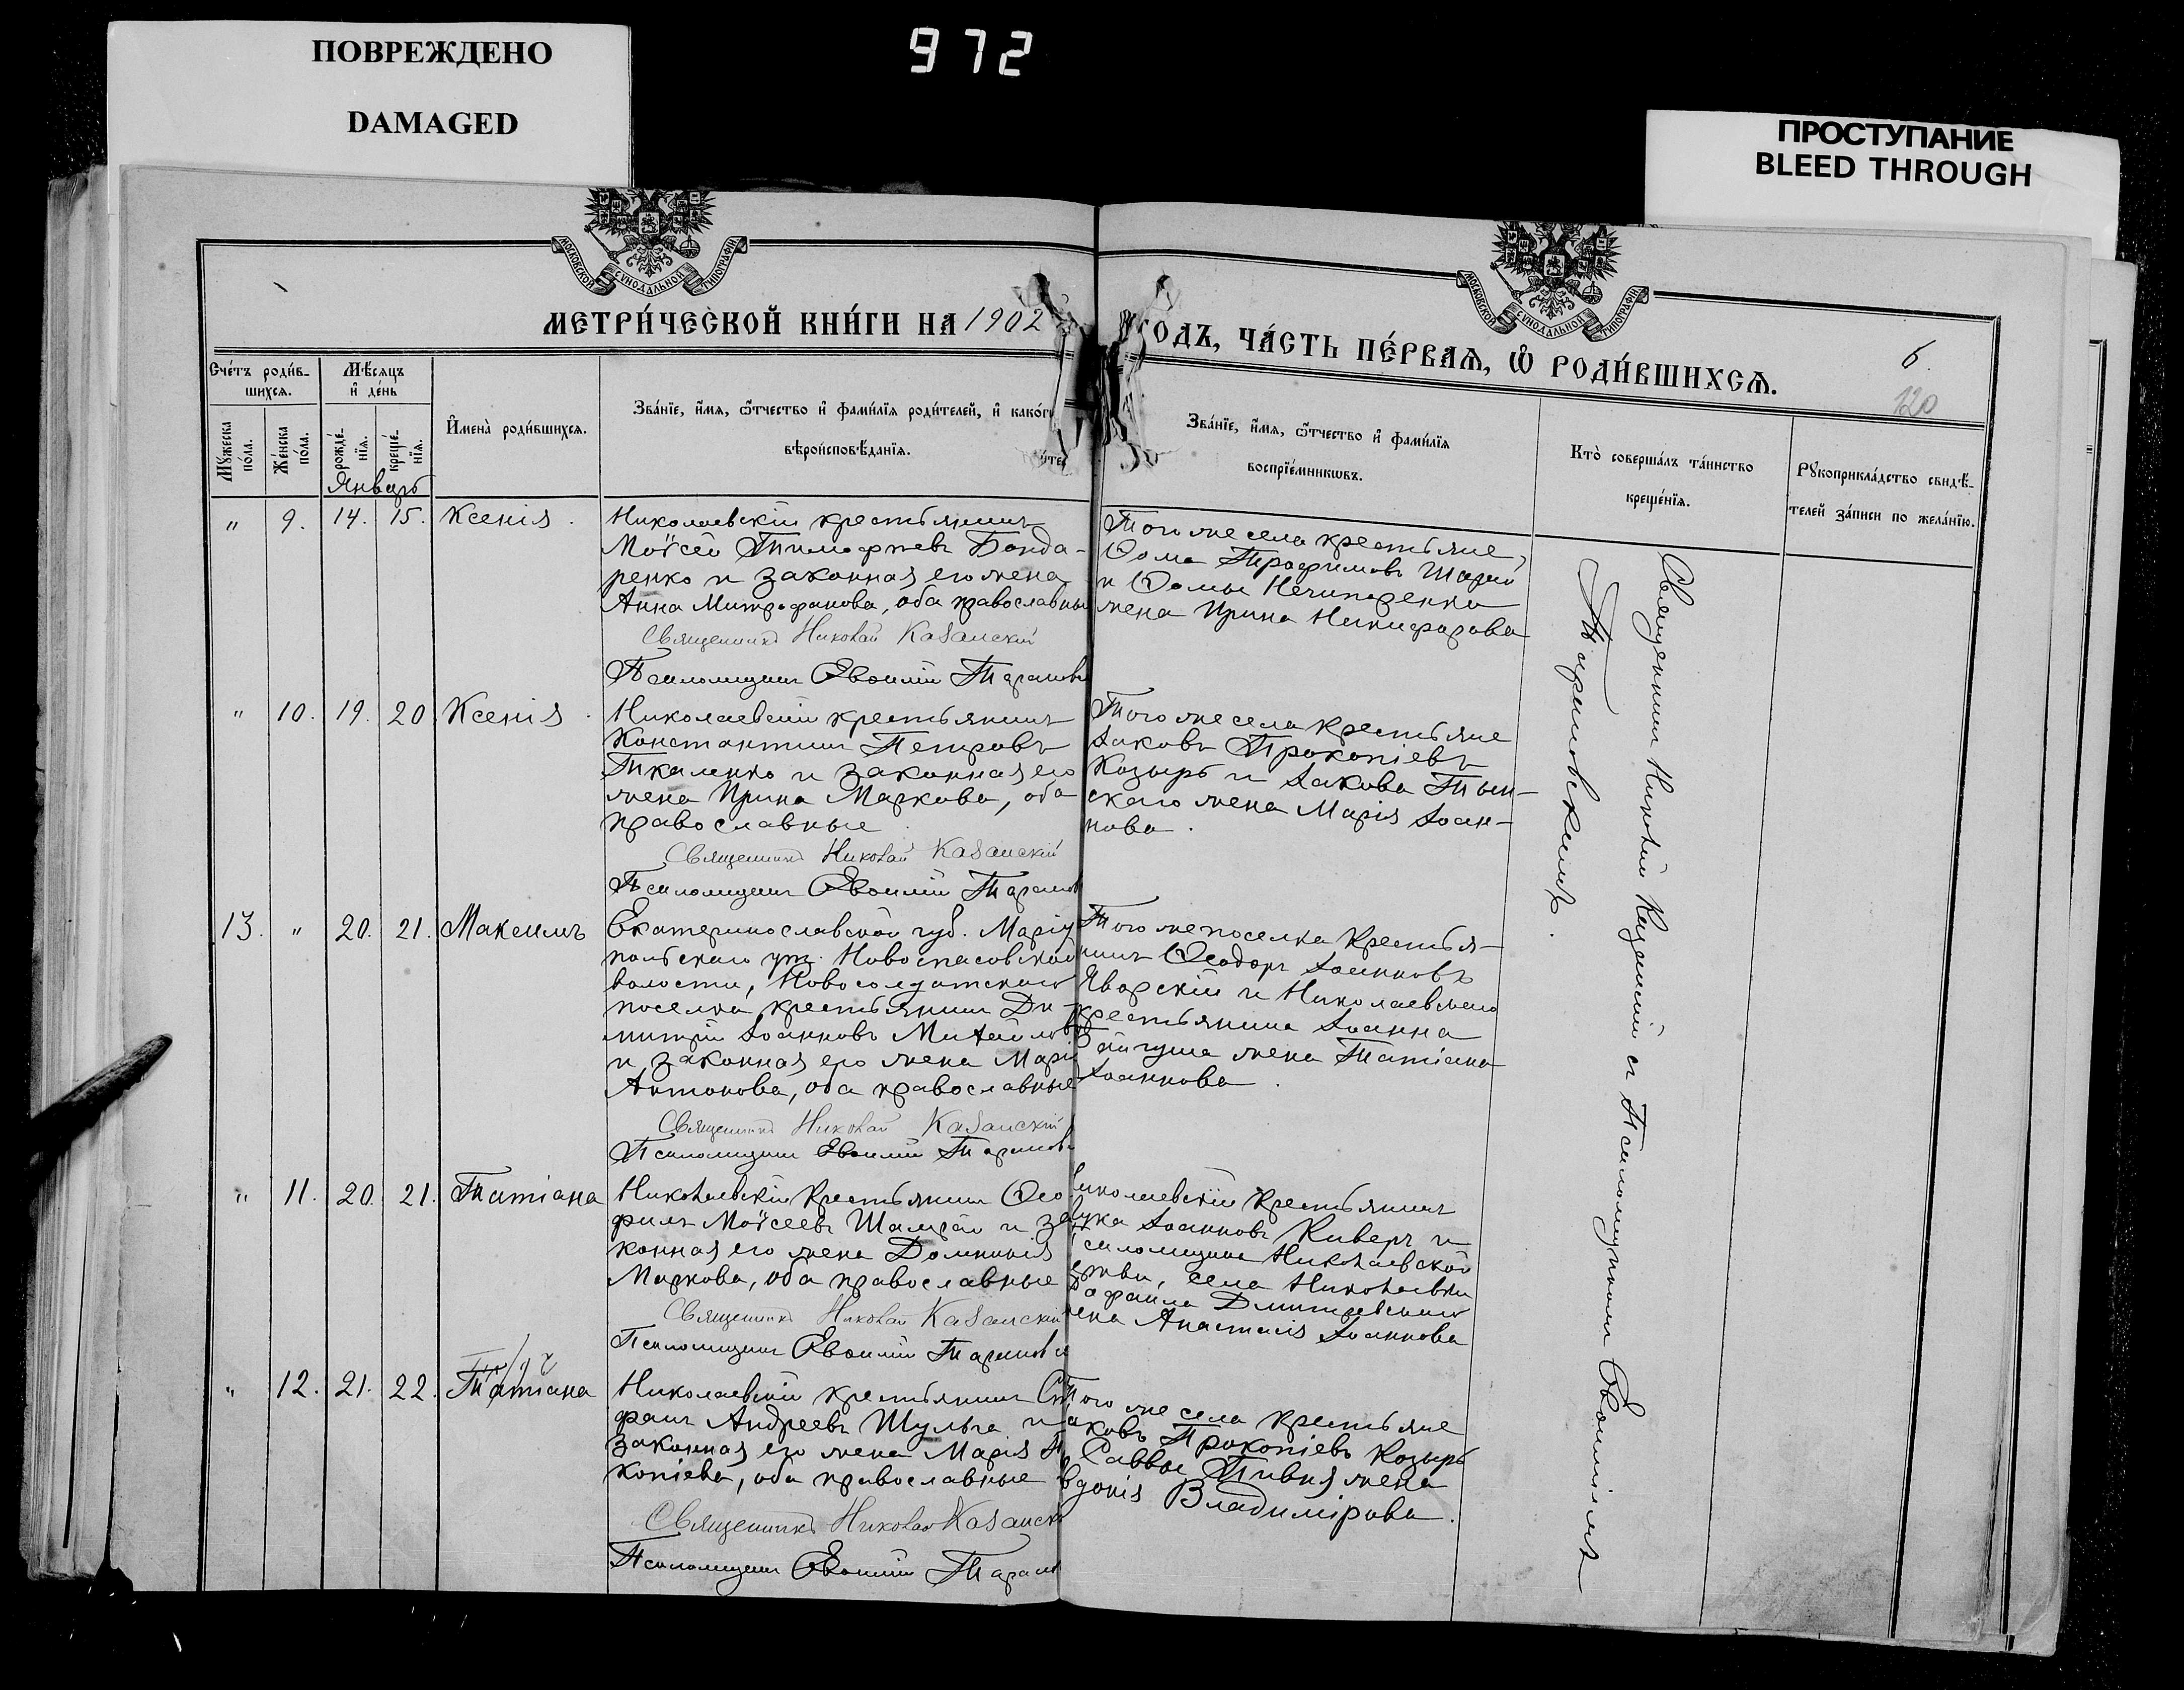 ПОВРЕЖДЕНО
DAMAGED
972
ПРОСТУПАНИЕ
BLEED THROUGH
МОСКОВСКОЙ СУНОДАЛЬНОЙ ТИПОГРАФІИ
МОСКОВСКОЙ СУНОДАЛЬНОЙ ТИПОГРАФІИ
МЕТРИ́ЧЕСКОЙ КНИ́ГИ НА 1902
ГОДЪ, ЧА́СТЬ ПЕ́РВАѦ, Ѡ҆ РОДИ́ВШИХСѦ.
6.
120
Счéтъ роди́в-
шихсѧ.
Мѣ́сѧцъ
и҆ дéнь
Мꙋ́жеска
по́ла.
Жéнска
по́ла.
рождé-
нїѧ.
крещé-
нїѧ.
Январь
И҆менà роди́вшихсѧ.
Звáнїе, и҆́мѧ, ѻ҆́тчество и҆ фами́лїѧ роди́телей, и҆ како́гѡ
вѣроисповѣ́данїѧ.
Звáнїе, и҆́мѧ, ѻ҆́тчество и҆ фами́лїѧ
воспрїéмникѡвъ.
Кто̀ соверша́лъ та́инство
крещéнїѧ.
Рꙋкоприкла́дство свидѣ́-
телей зáписи по желáнїю.
" 9. 14. 15. Ксенія.
Николаевскій крестьянинъ
Моѵсей Тимофѣевъ Бонда-
ренко и законная его жена
Анна Митрофанова, оба православные
Священникъ Николай Казанскій
Псаломщикъ Евѳимій
Того же села крестьяне,
Ѳома Трофимовъ Шарай
и Ѳомы Нечипоренка
жена Ирина Никифорова
" 10. 19. 20 Ксенія.
Николаевскій крестьянинъ
Константинъ Петровъ
Ткаленко и законная его
жена Ирина Маркова, оба
православные.
Священникъ Николай Казанскій
Псаломщикъ Евѳимій
Того же села крестьяне
Іаковъ Прокопіевъ
Козырь и Іакова Тын-
скаго жена Марія Іоан-
нова.
13. " 20. 21. Максимъ
Екатеринославской губ. Маріу
польскаго уѣз. Новоспасовской
волости, Новосолдатскаго
поселка крестьянинъ Ди-
митрій Іоанновъ Михайлов
и законная его жена Марія
Антонова, оба православные
Священникъ Николай Казанскій
Псаломщикъ Евѳимій
Того же поселка крестья-
нинъ Ѳеодоръ Іоанновъ
Яворскій и Николаевскаго
крестьянина Іоанна
жена Татіана
Іоаннова.
" 11. 20. 21. Татіана
Николаевскій крестьянинъ Ѳео
филъ Моѵсеевъ Шамрай и за
конная его жена Домникія
Маркова, оба православные
Священникъ Николай Казанскій
Псаломщикъ Евѳимій
иколаевскій крестьянинъ
ука Іоанновъ Киверъ и
саломщика Николаевской
ркви, села Николаевки
Димитревскаго
ена Анастасія Іоаннова
" 12. 21. 22. Татіана
Николаевскій крестьянинъ Сте
фанъ Андреевъ Шульга и
законная его жена Марія
копіева, оба православные
Священникъ Николай Казанскі
Псаломщикъ Евѳимій
Того же села крестьяне
аковъ Прокопіевъ Козырь
Саввы Пивня жена
вдокія Владимірова.
Священникъ Николай Казанскій съ Псаломщикомъ Евѳиміемъ
Тарановскимъ.